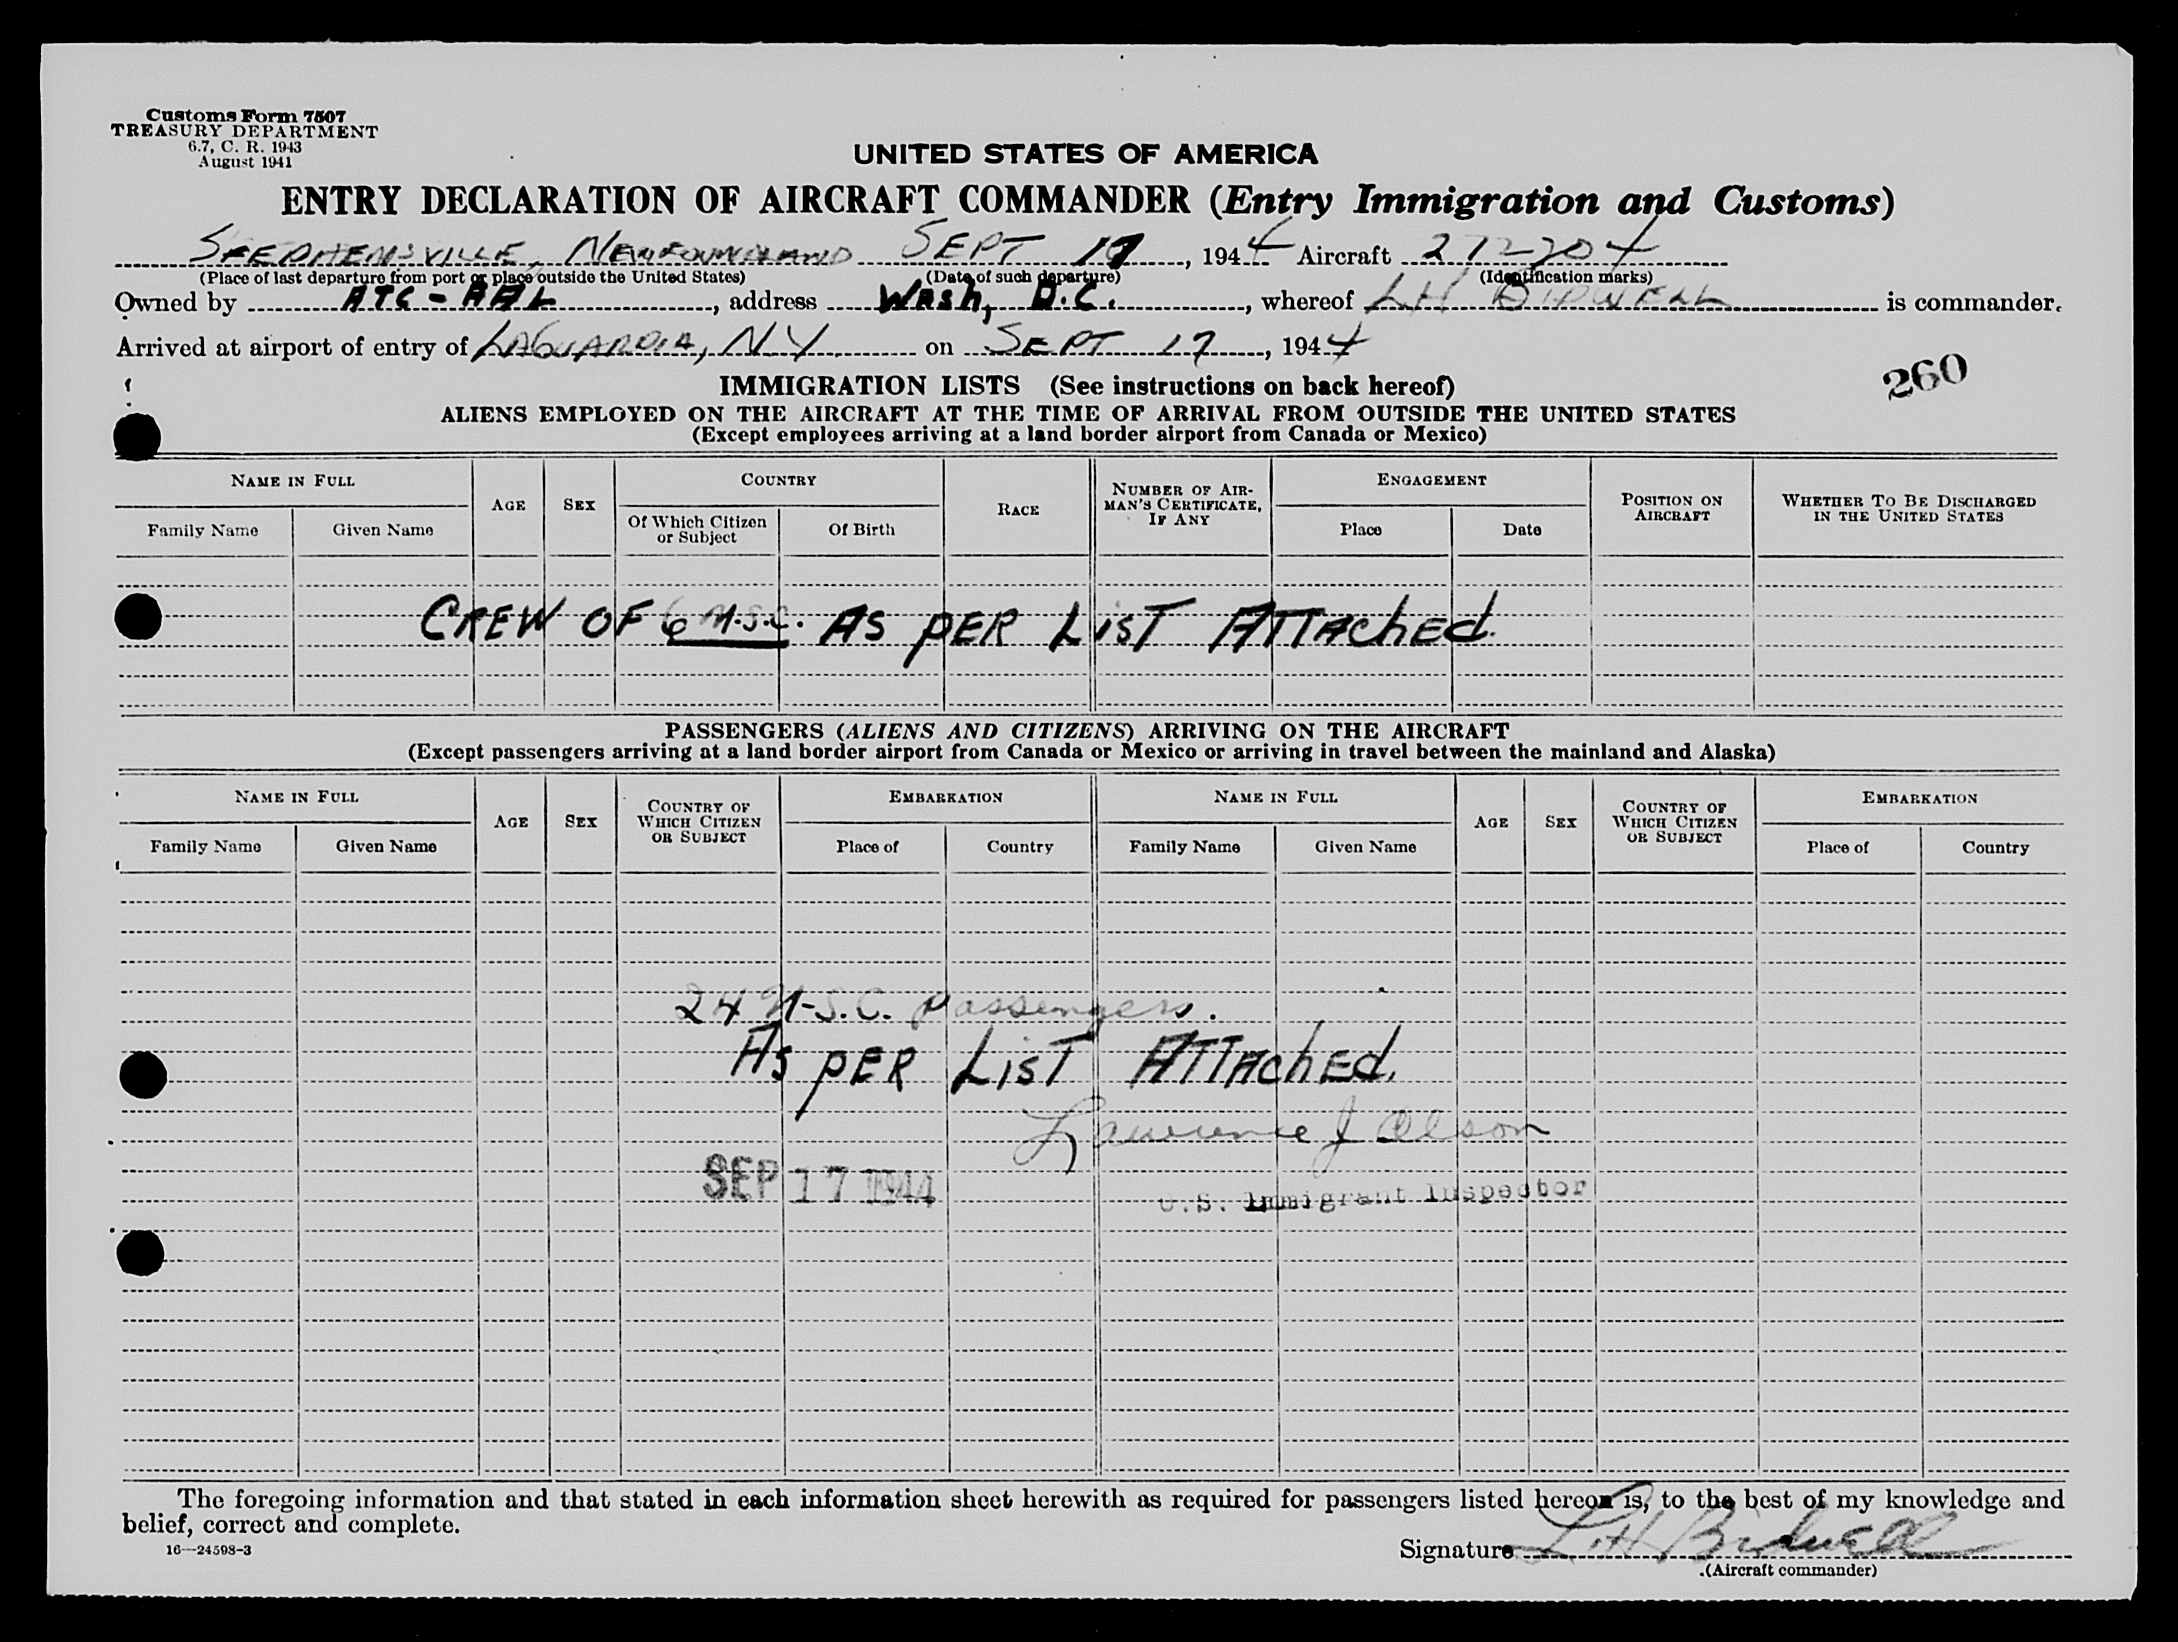 Customs Form 7507
TREASURY DEPARTMENT
6.7, C. R. 1943
August 1941
UNITED STATES OF AMERICA
ENTRY DECLARATION OF AIRCRAFT COMMANDER (Entry Immigration and Customs)
STEPHENSVILLE, NEWFOUNDLAND SEPT 17, 1944 Aircraft 272204
(Place of last departure from port or place outside the United States) (Date of such departure) (Identification marks)
Owned by ATC - AAL, address Wash, D.C., whereof LH BIDWELL is commander.
Arrived at airport of entry of LAGUARDIA, NY on SEPT 17, 1944
260
IMMIGRATION LISTS (See instructions on back hereof)
ALIENS EMPLOYED ON THE AIRCRAFT AT THE TIME OF ARRIVAL FROM OUTSIDE THE UNITED STATES
(Except employees arriving at a land border airport from Canada or Mexico)
NAME IN FULL AGE SEX COUNTRY RACE NUMBER OF AIRMAN'S CERTIFICATE, IF ANY ENGAGEMENT POSITION ON AIRCRAFT WHETHER TO BE DISCHARGED IN THE UNITED STATES
Family Name Given Name Of Which Citizen or Subject Of Birth Place Date
CREW OF 6 N.S.C. AS PER LIST ATTACHED.
PASSENGERS (ALIENS AND CITIZENS) ARRIVING ON THE AIRCRAFT
(Except passengers arriving at a land border airport from Canada or Mexico or arriving in travel between the mainland and Alaska)
NAME IN FULL AGE SEX COUNTRY OF WHICH CITIZEN OR SUBJECT EMBARKATION NAME IN FULL AGE SEX COUNTRY OF WHICH CITIZEN OR SUBJECT EMBARKATION
Family Name Given Name Place of Country Family Name Given Name Place of Country
24 N-S.C. Passengers.
As PER LIST ATTACHED.
Lawrence J Olson
SEP 17 1944
U.S. Immigrant Inspector
The foregoing information and that stated in each information sheet herewith as required for passengers listed hereon is, to the best of my knowledge and
belief, correct and complete.
16—24598-3
Signature L.H. Bidwell
(Aircraft commander)